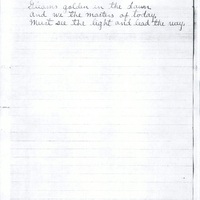 golden in the dawn
and we the masters of today,
Must see the light and lead the way.